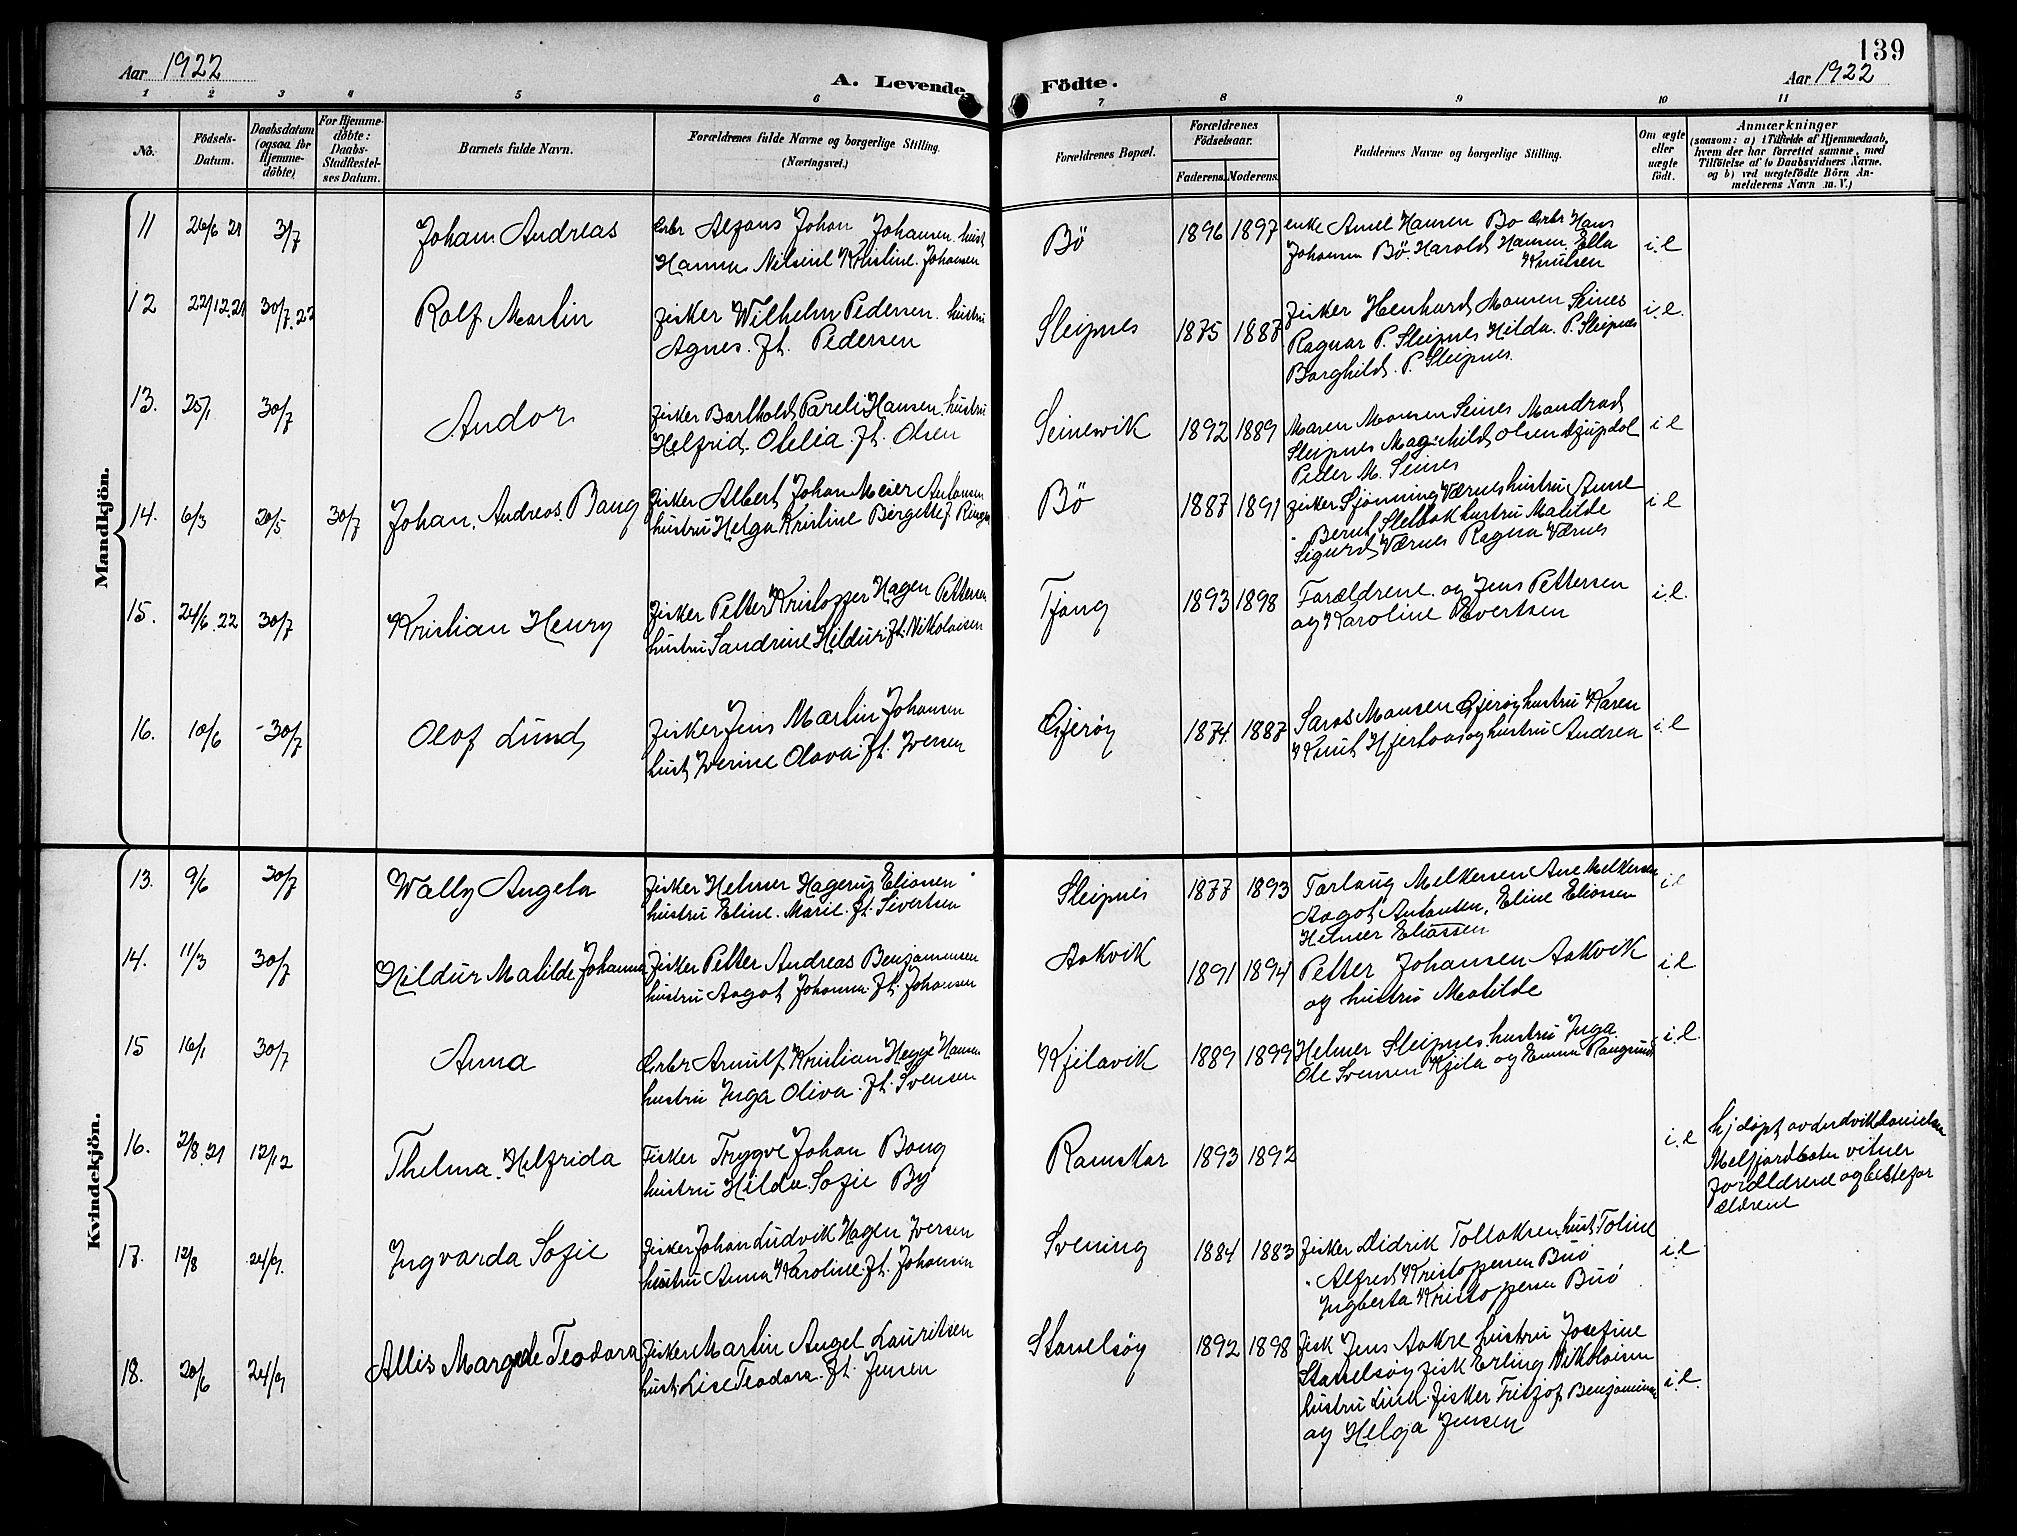 139
Aar 1922
A. Levende Födte.
Aar 1922
1 2 3 4 5 6 7 8 9 10 11
No.
Födsels-
Datum.
Daabsdatum
(ogsaa for
Hjemme-
döbte)
For Hjemme-
döbte:
Daabs-
Stadfæstel-
ses Datum.
Barnets fulde Navn.
Forældrenes fulde Navne og borgerlige Stilling.
(Næringsvei.)
Forældrenes Bopæl.
Forældrenes
Födselsaar.
Faderens. Moderens.
Faddernes Navne og borgerlige Stilling.
Om ægte
eller
uægte
födt.
Anmærkninger
(saasom: a) i Tilfælde af Hjemmedaab,
hvem der har forrettet samme, med
Tilföielse af to Daabsvidners Navne.
og b) ved uægtefödte Börn An-
melderens Navn m. V.)
Mandkjön.
11 26/6 21 3/7 Johan Andreas
Johan Johansen hust
Hanna Nilsine Kristine Johansen
Bö 1896 1897
enke Hansen Bo Hans
Johansen Bö Harold Hansen Ella
Knutsen
i.e
12 22/12 21 30/7.22 Rolf Martin
fisker Wilhelm Pedersen hustru
Agnes. ft. Pedersen
Sleipnes 1875 1887
fisker Henhard Monsen Seines
Ragnar P. Sleipnes Hilda. P. Sleipnes
Borghild. P. Sleipnes.
i.e.
13. 25/1 30/7 Andor
fisker Barthold Pareli Hansen hustru
Helfrid Otelia ft. Olsen
Seinesvik 1892 1889
Maren Monsen Seines
Sleipnes Magnhild Olsen
Peder M. Seines
i e
14. 6/3 20/5 30/7 Johan. Andreas. Bang
fisker Albert Johan Meier Antonsen
hustru Helga Kristine
Bö 1887 1891
fisker Værnes hustru Anne
Bernt hustru Matilde
Sigurd Værnes Ragna Værnes
i e
15. 24/6.22 30/7 Kristian Henry
fisker Petter Kristoffer Hagen Pettersen
hustru Sandrine Hildur ft. Nikolaisen
Tjong 1893 1898
Forældrene og Jens Pettersen
og Karoline Evertsen
i.e.
16. 10/6 -30/7 Olaf Lund
fisker Jens Martin Johansen
hust Iverine Olava ft. Iversen
Gjerøy 1874. 1887
Monsen Gjerøy hustru Karen
Knut og hustru Andrea
i.e
Kvindekjön.
13. 9/6 30/7 Wally Angela
fisker Helmer Hagerup Eliassen
hustru Eline. Marie. ft. Sivertsen
Sleipnes 1877 1893
Torlaug Melkersen Ane Melkersen
Aagot Antonsen, Eline Eliassen
Helmer Eliassen
i e
14. 11/3 30/7 Hildur Matilde Johanna
fisker Petter Andreas Benjaminsen
hustru Aagot Johanna ft. Johansen
Aakvik 1891 1894
Petter Johansen Aakvik
og hustru Matilde
i.e
15 16/1 30/7 Anna
Arnulf Kristian Hegge Hansen
hustru Inga Oliva. ft. Svensen
Kjilavik 1889 1899
Helmer Sleipnes hustru Inga
Ole Svensen Kjila og Emma
i.e.
16. 2/8.21 12/12 Thelma. Helfrida
Fisker Trygve Johan Bang
hustru Hilda Sofie By
Ramskar 1893 1892
i.e
hj.døpt av
vitner
forældrene og bestefor
ældrene
17. 12/8 24/9. Ingvarda Sofie
fisker Johan Ludvik Hagen Iversen
hustru Anna Karoline. ft. Johansen
Svening 1884 1883
fisker Didrik Tollaksen hust. Toline
Alfred Kristoffersen Buø
Ingberta Kristoffersen Buø
i.e
18. 20/6 24/9 Allis Margrete Teodora
fisker Martin Angel Lauritsen
hust. Lise Teodora. ft. Jensen
Stasselsøy 1892 1898
fisk Jens Aakre hustru Josefine
Stasselsøy fisk Erling Nikolaisen
hustru fisker Fritjof Benjaminsen
og Helga Jensen
i.e.